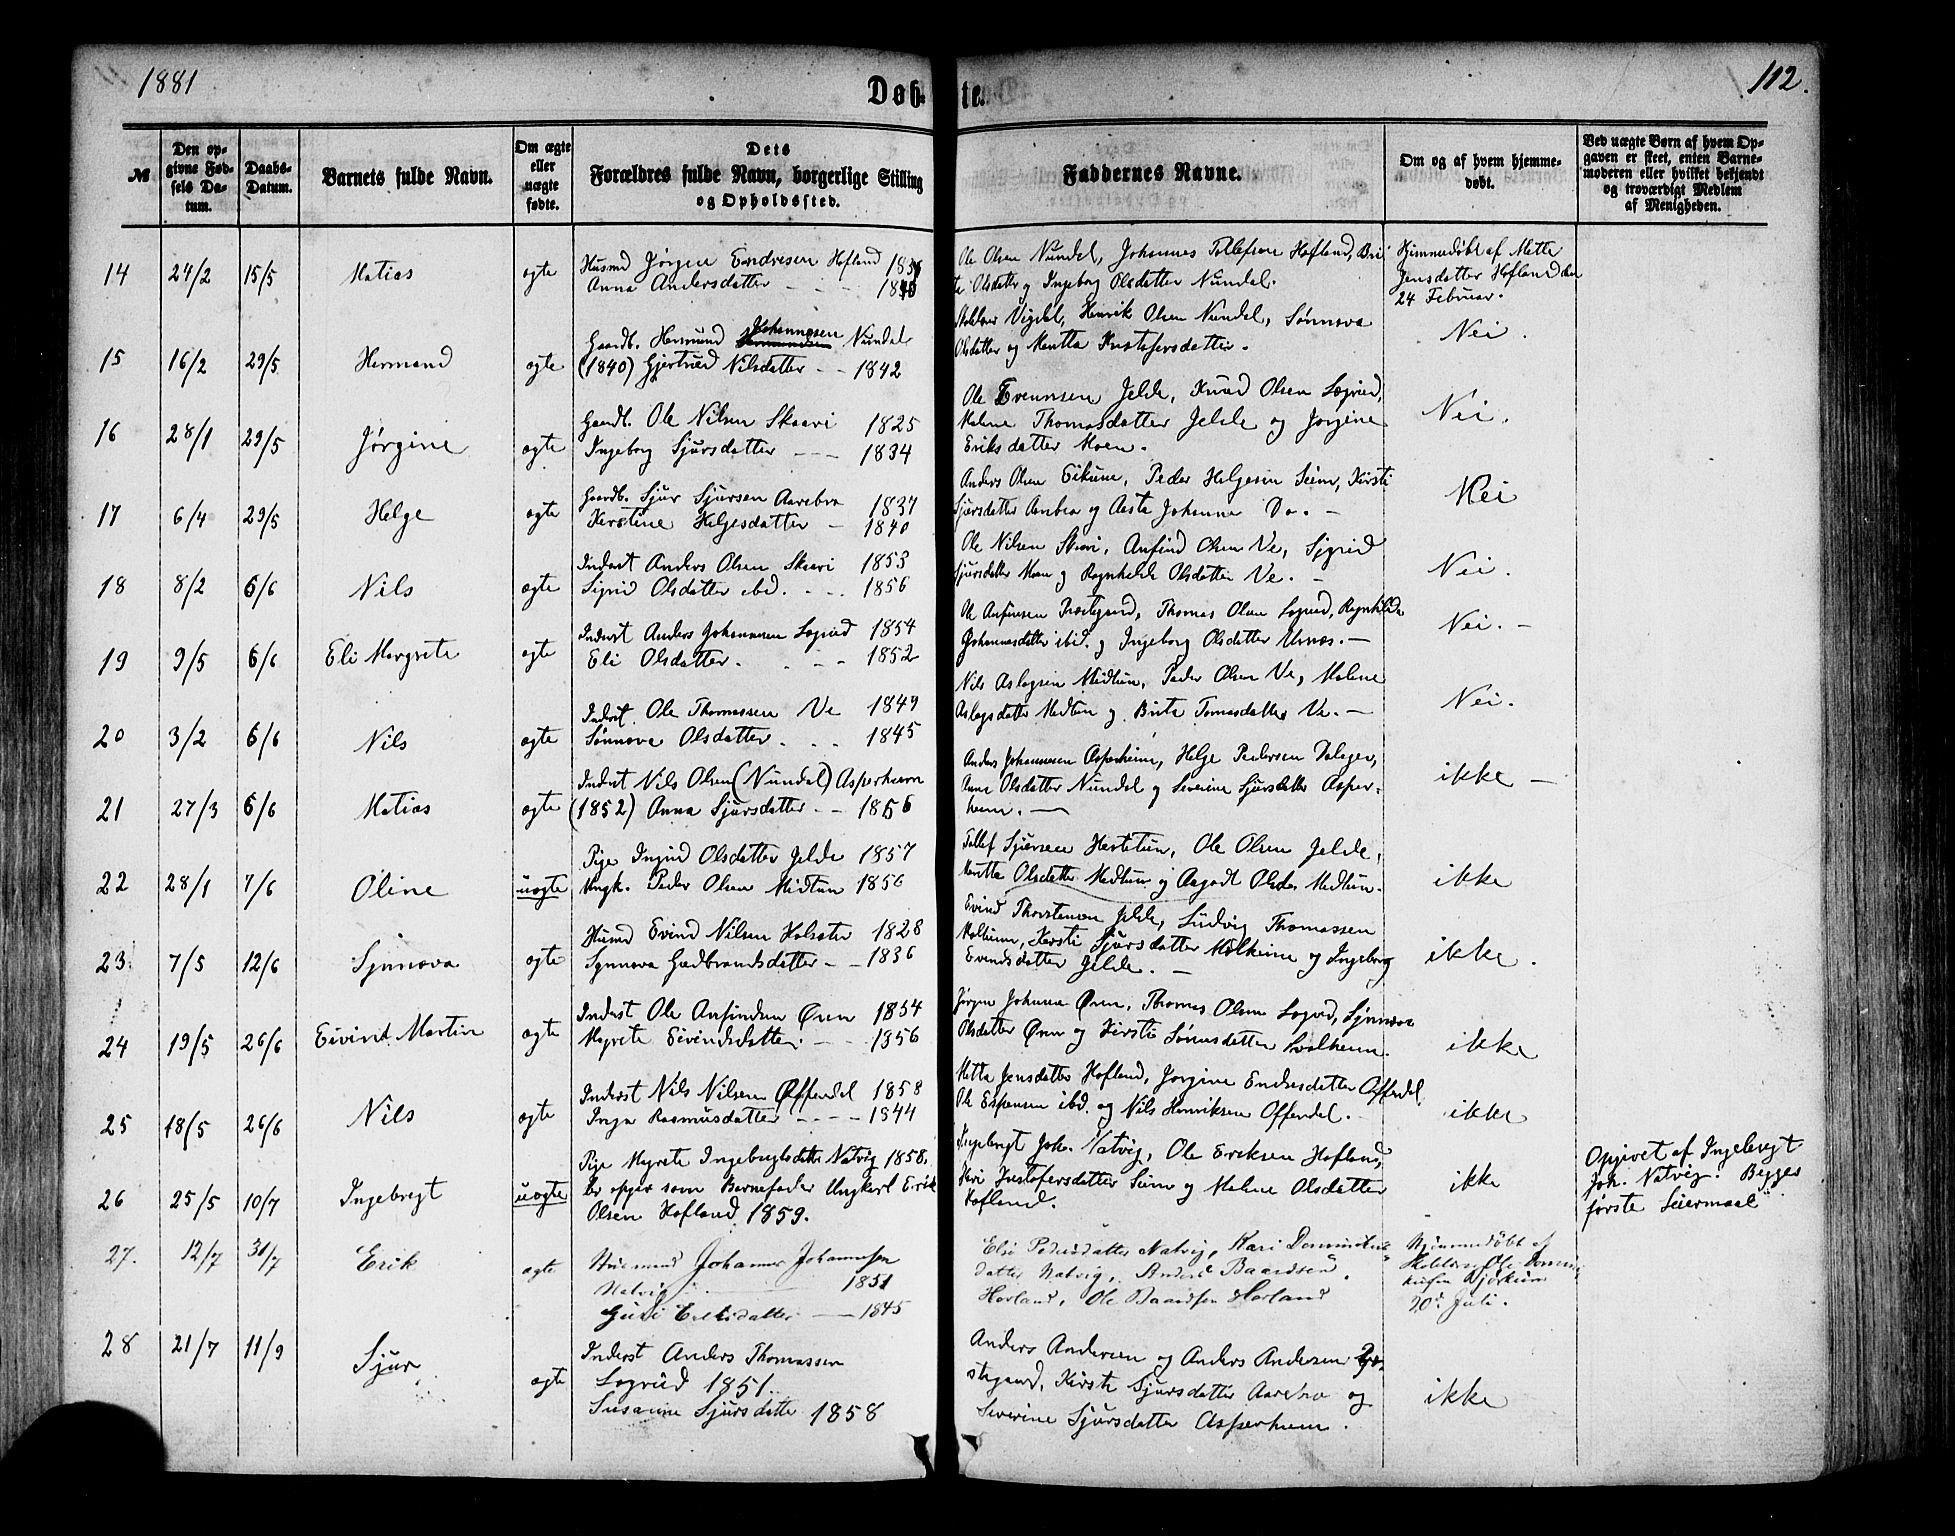 1881
Døb-
te.
112.
№
Den op-
givne Fød-
sels Da-
tum.
Daabs-
Datum.
Barnets fulde Navn.
Om ægte
eller
uægte
fødte.
Dets
Forældres fulde Navn, borgerlige Stilling
og Opholdssted.
Faddernes Navne.
Om og af hvem hjemme-
døbt.
Ved uægte Børn af hvem Op-
gaven er skeet, enten Barne-
moderen eller hvilket bekjendt
og troværdigt Medlem
af Menigheden.
14 24/2 15/5 Matias ægte
Husmd Jørgen Endresen Hofland
Anna Andersdatter - - -
Ole Olsen Nundal, Johannes Tollefsen Hofland, Bri
te Olsdatter og Ingeborg Olsdatter Nundal.
Hjemmedøbt af Mette
Jensdatter Hofland den
24 Februar.
15 16/2 29/5 Hermand ægte
Gaardb. Hermund Johannesen Nundal
(1840) Gjertrud Nilsdatter - - 1842
Vigdal, Henrik Olsen Nundal, Sønnova
Olsdatter og Mentta Kristofersdatter.
Nei.
16 28/1 29/5 Jørgine ægte
Gaardb. Ole Nilsen Skaari 1825
Ingeborg Sjursdatter - - - 1834
Ole Evennsen Jelde, Knud Olsen Sogrud,
Malene Thomasdatter Jelde og Jørgine
Eriksdatter Moen.
Nei.
17 6/4 29/5 Helge ægte
Gaardb. Sjur Sjursen Aarebro 1837
Kerstine Helgesdatter - 1840
Anders Olsen Eikum, Peder Helgesen Seim, Kirsti
Sjursdatter Aarebro og Aasta Johanne Do. -
Nei
18 8/2 6/6 Nils ægte
Inderst Anders Olsen Skaari 1853
Sigrid Olsdatter ibd. - . . 1856
Ole Nilsen Skaari, Anfind Olsen Ve, Sigrid
Sjursdatter Moen og Ragnhilde Olsdatter Ve. -
Nei.
19 9/5 6/6 Eli Margrete ægte
Inderst Anders Johannesen Sogrud 1854
Eli Olsdatter. . - - 1852
Ole Anfinsen Præstegaard, Thomas Olsen Sogrud, Ragnhilda
Johannesdatter ibid. og Ingeborg Olsdatter Urnæs. -
Nei. -
20 3/2 6/6 Nils ægte
Inderst. Ole Thomassen Ve 1849
Sønnova Olsdatter. . . . 1845
Nils Aslagsen Midtun, Peder Olsen Ve, Malene
Aslagsdatter Midtun og Brita Tomasdatter Ve. -
Nei.
21 27/3 6/6 Matias ægte
Inderst Nils Olsen (Nundal) Asperheim
(1852) Anna Sjursdatter - - 1856
Anders Johannesen Asperheim, Helge Pedersen
Anne Olsdatter Nundal og Severine Sjursdatter Asper-
heim. -
ikke -
22 28/1 7/6 Oline uægte
Pige Ingrid Olsdatter Jelde 1857
Ungk. Peder Olsen Midtun 1856
Tollef Sjursen Hestetun, Ole Olsen Jelde,
Mentta Olsdatter Midtun og Aagodt Olsdr Midtun.
ikke
23. 7/5 12/6 Synnova ægte
Husmd Evind Nilsen 1828
Synnova Gudbrandsdatter - - 1836
Evind Thorstensen Jelde, Ludvig Thomassen
Molheim, Kersti Sjursdatter Molheim og Ingeborg
Evindsdatter Jelde. -
ikke.
24 19/5 26/6 Eivind Martin ægte
Inderst Ole Anfindsen Øren 1854
Magrete Eivindsdatter. - - 1856
Jørgen Johannes Øren, Thomas Olsen Sogrud, Synnøve
Olsdatter Øren og Kirsti Sjursdatter
ikke
25 18/5 26/6 Nils ægte
Inderst Nils Nilsen Øffendal 1858
Inga Rasmusdatter - - - - 1844
Metta Jensdatter Hofland, Jørgine Endresdatter Øffendal,
Ole Espensen ibd. og Nils Henriksen Øffendal. -
ikke
26 25/5 10/7 Ingebregt uægte
Pige Magrete Ingebregtsdatter Natvig 1858.
er opgiv som Barnefader Ungkarl Erik
Olsen Hofland 1859.
Ingebregt Joh. Natvig, Ole Eriksen Hofland,
Kari Kristofersdatter Seim og Malene Olsdatter
Hofland.
ikke
Opgivet af Ingebregt
Joh. Natvig. Begges
første Leiermaal
27. 12/7 31/7 Erik ægte
Huusmand Johannes Johannesen
Natvig - - 1851
Guri Eriksdatter - 1845
Elsi Pedersdatter Natvig, Kari
datter Natvig, Anders Baardsen
Horland, Ole Baardsen Horland
Hjemmedøbt af
Ole
Bjørkum
20de Juli.
28 21/7 11/9 Sjur ægte
Inderst Anders Thomassen
Sogrud 1851.
Susanne Sjursdatter 1858
Anders Andersen og Anders Andersen
stegaard, Kirsti Sjursdatter Aarebro og
Severine Sjursdatter Asperheim.
ikke